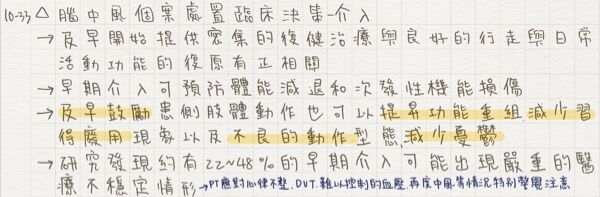 10-33 △ 腦中風個案處置臨床決策-介入
→ 及早開始提供密集的復健治療與良好的行走與日常
活動功能的復原有正相關
→ 早期介入可預防體能減退和次發性機能損傷
→ 及早鼓勵患側肢體動作也可以提昇功能重組減少習
得廢用現象以及不良的動作型態,減少憂鬱
→ 研究發現約有22~48%的早期介入可能出現嚴重的醫
療不穩定情形 → PT應對心律不整、DVT、難以控制的血壓、再度中風等情況特別警覺注意